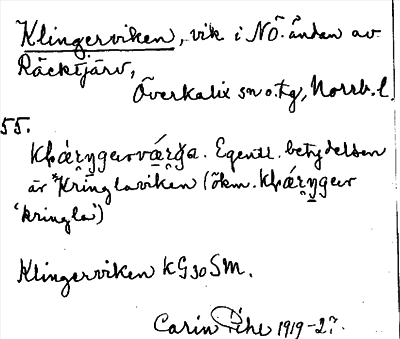 Klingerviken, vik i NÖ. änden av
Räcktjärv,
Överkalix sn o. tg, Norrb. l.
55.
Egentl. betydelsen
är *Kringlaviken (ökm.
'kringla')
Klingerviken KG 30 SM.
Carin Pihl 1919-27.